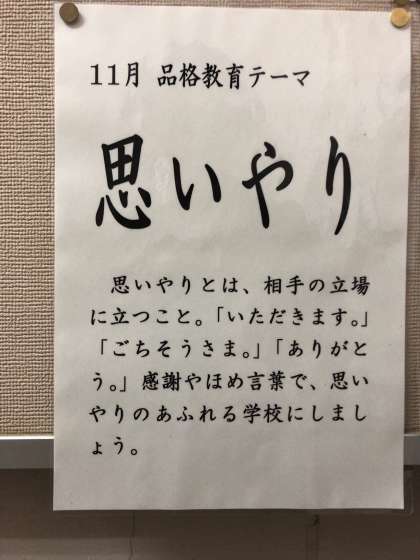 11月 品格教育テーマ
思いやり
思いやりとは、相手の立場
に立つこと。「いただきます。」
「ごちそうさま。」「ありがと
う。」感謝やほめ言葉で、思い
やりのあふれる学校にしまし
ょう。